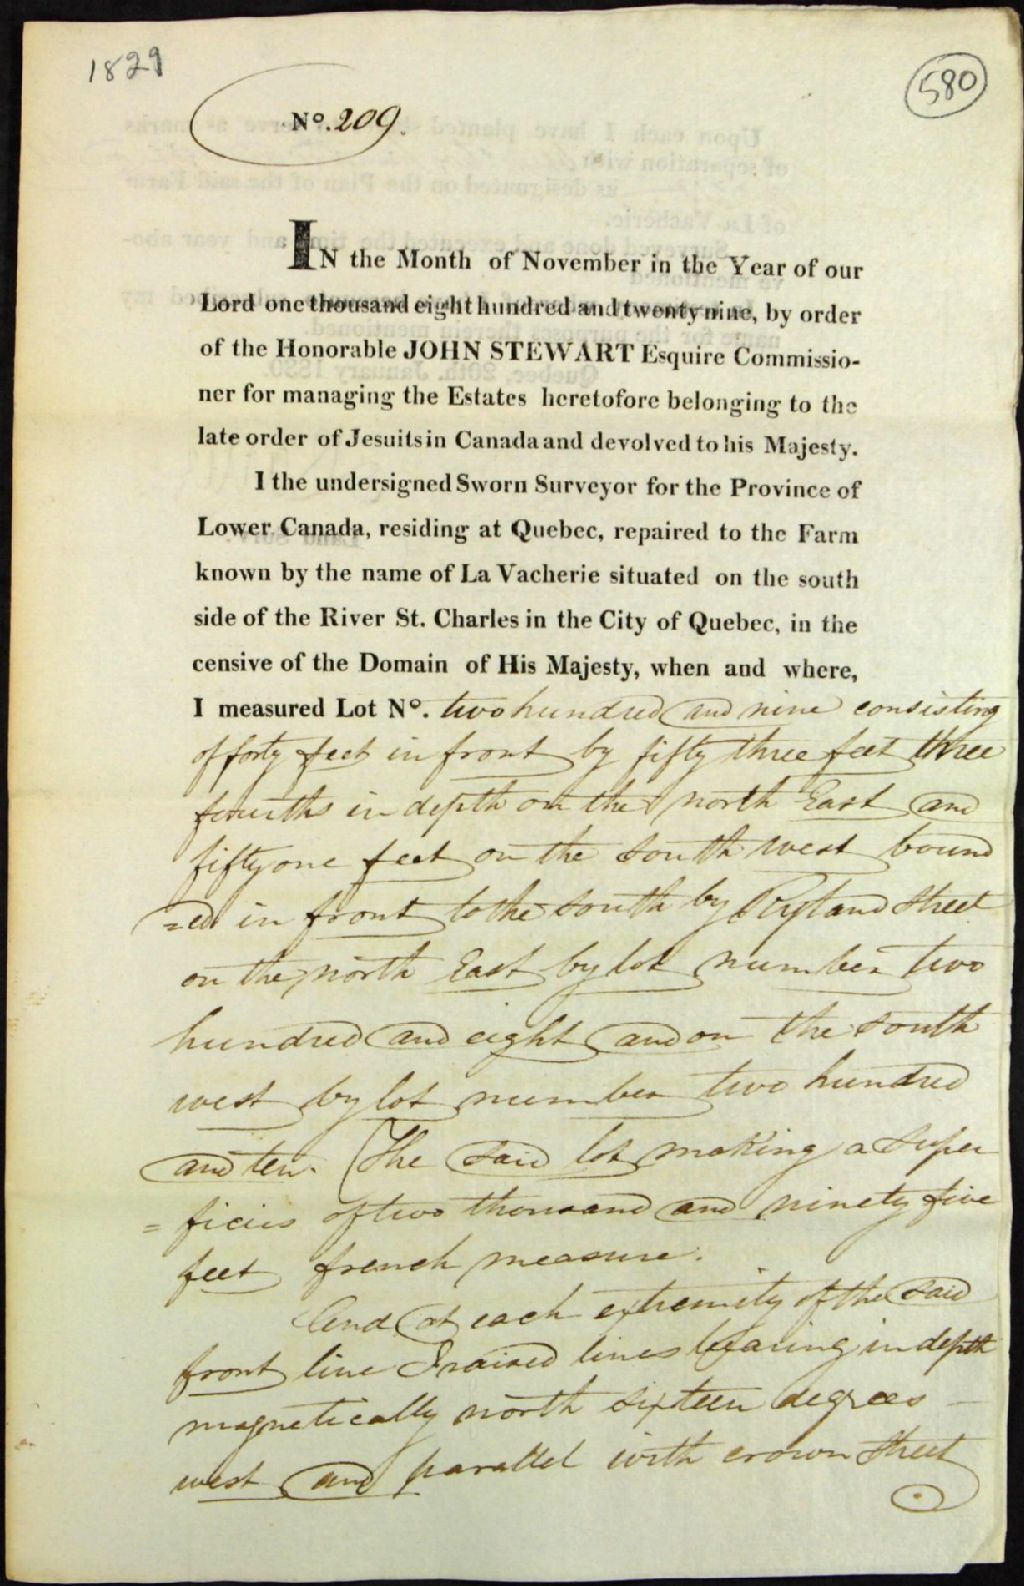 1829
580
No. 209.
IN the Month of November in the Year of our
Lord one thousand eight hundred and twenty nine, by order
of the Honorable JOHN STEWART Esquire Commissio-
ner for managing the Estates heretofore belonging to the
late order of Jesuits in Canada and devolved to his Majesty.
I the undersigned Sworn Surveyor for the Province of
Lower Canada, residing at Quebec, repaired to the Farm
known by the name of La Vacherie situated on the south
side of the River St. Charles in the City of Quebec, in the
censive of the Domain of His Majesty, when and where,
I measured Lot No. two hundred and nine consisting
of forty feet in front by fifty three feet three
fourths in depth on the north East and
fifty one feet on the south west bound
=ed in front to the south by Ryland Street
on the north East by lot number two
hundred and eight and on the south
west by lot number two hundred
and ten. The said lot making a super
=ficies of two thousand and ninety five
feet french measure.
And at each extremity of the said
front line I raised lines bearing in depth
magnetically north sixteen degrees
west and parallel with crown Street